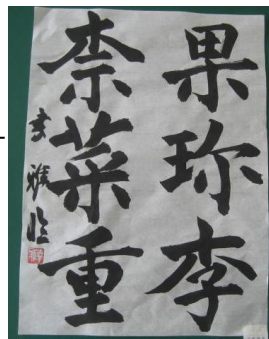 果珍李
柰菜重